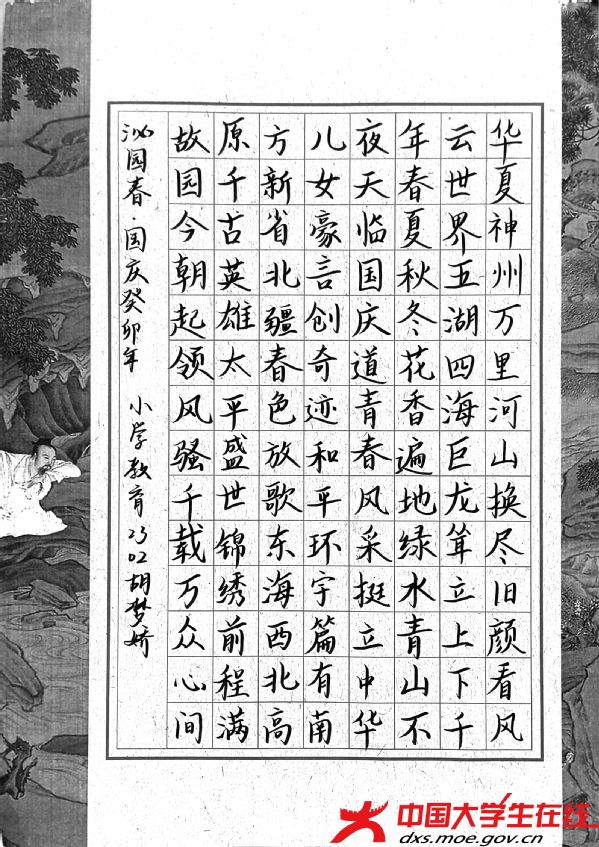 华夏神州万里河山换尽旧颜看风
云世界五湖四海巨龙耸立上下千
年春夏秋冬花香遍地绿水青山不
夜天临国庆道青春风采挺立中华
儿女豪言创奇迹和平环宇篇有南
方新省北疆春色放歌东海西北高
原千古英雄太平盛世锦绣前程满
故园今朝起领风骚千载万众心间
沁园春·国庆癸卯年 小学教育2302胡梦娇
中国大学生在线
dxs.moe.gov.cn